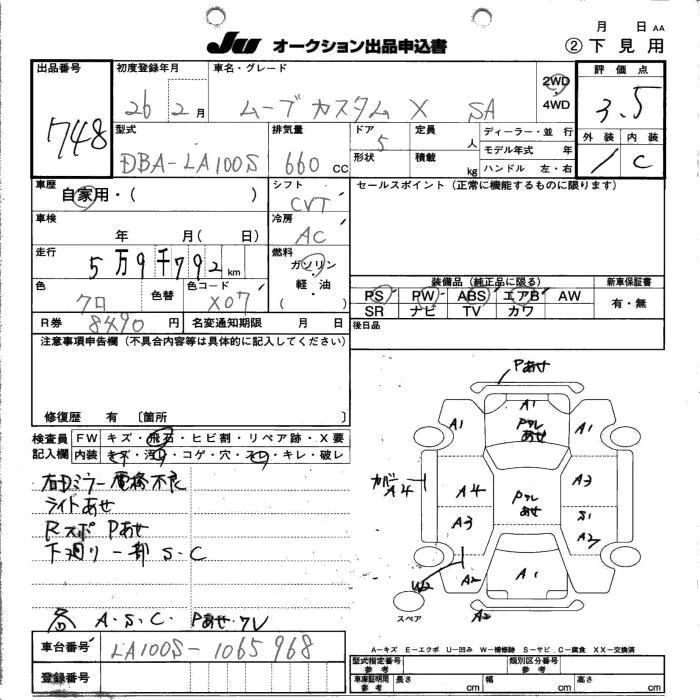 JU オークション出品申込書
月 日 AA
② 下見用
出品番号 初度登録年月 車名・グレード 評価点
748
26 2月 ムーブカスタム X SA
2WD・4WD
3.5
外装 内装
/ C
型式 排気量 ドア 定員 ディーラー・並行
DBA-LA100S 660 CC 5 人
モデル年式 年
形状 積載 kg ハンドル 左・右
車歴 シフト セールスポイント(正常に機能するものに限ります)
自家用・( ) CVT
車検 冷房
年 月( 日) AC
走行 燃料
5万9千792 km ガソリン・軽・油( )
色 色替 色コード
クロ X07
装備品(純正品に限る) 新車保証書
PS PW ABS エアB AW 有・無
SR ナビ TV カワ
R券 8490円 名変通知期限 月 日 後日品
注意事項申告欄(不具合内容等は具体的に記入してください)
修復歴 有〔箇所 〕
検査員記入欄 FW キズ・飛石・ヒビ割・リペア跡・X要
内装 キズ・汚れ・コゲ・穴・スレ・キレ・破レ
右Dミラー電格不良
ライトあせ
Rスポ Pあせ
下廻り一部 S.C
各 A.S.C Pあせ・クレ
Pあせ
A1
A1 Pクレあせ A1
カバーA4 A4 Pクレあせ A3
A3 S1
A2
W2 A2 A1
A2
スペア
車台番号 LA100S-1065968
登録番号
A-キズ E-エクボ U-凹み W-補修跡 S-サビ C-腐食 XX-交換済
型式指定番号 参考 類別区分番号 参考
車庫証明用 参考 長さ cm 幅 cm 高さ cm